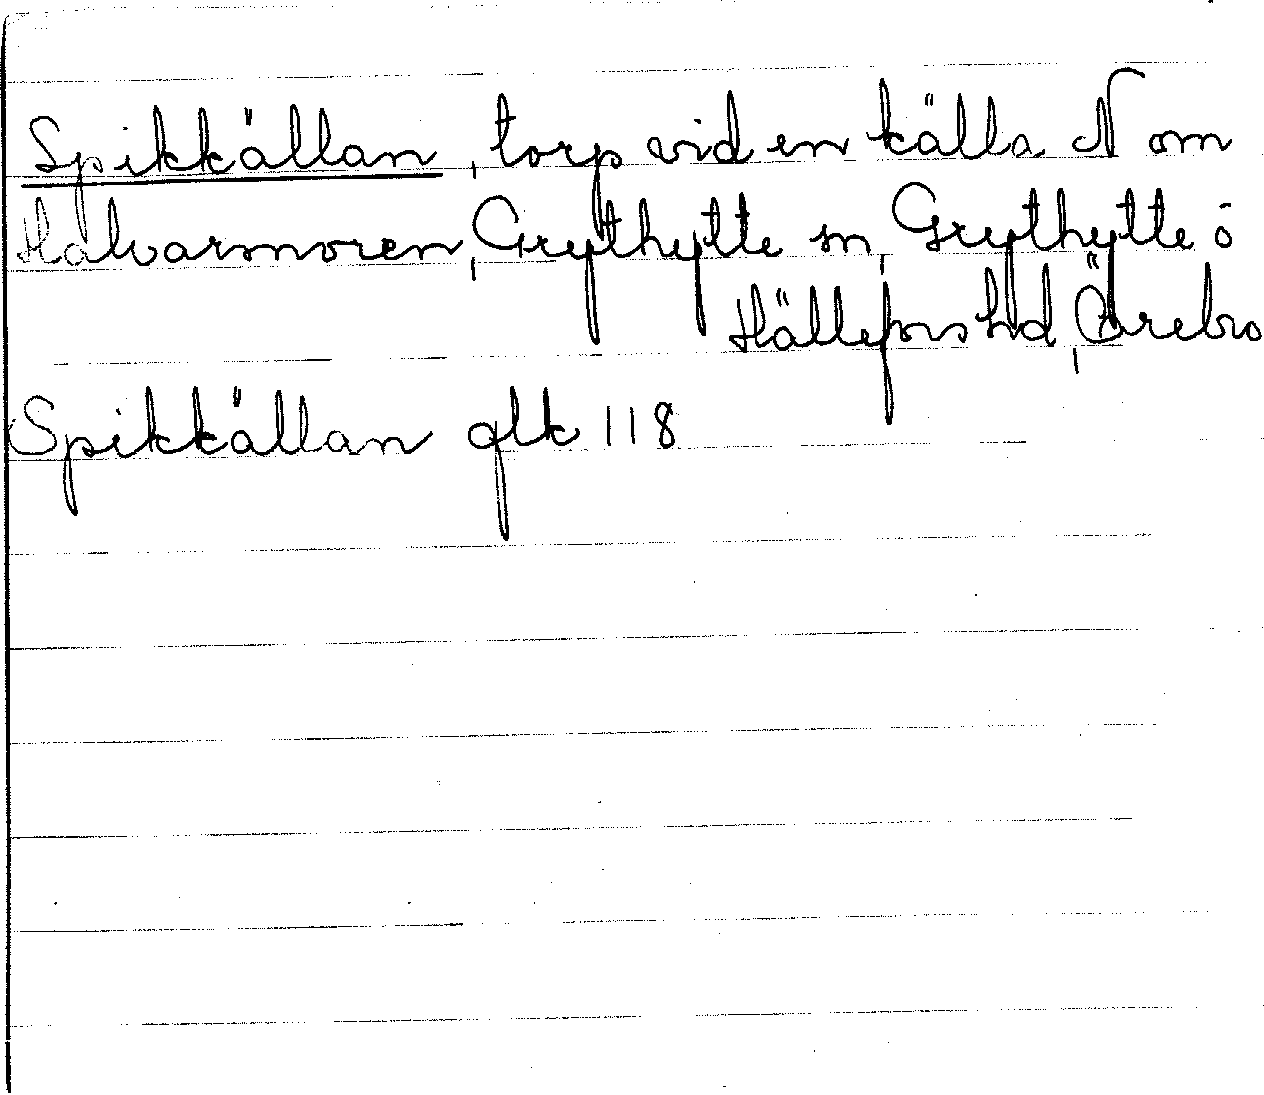 Spikkällan, torp vid en källa N om
Halvarsnoren, Grythytte sn, Grythytte o
Hällefors hd, Örebro
Spikkällan glk 118